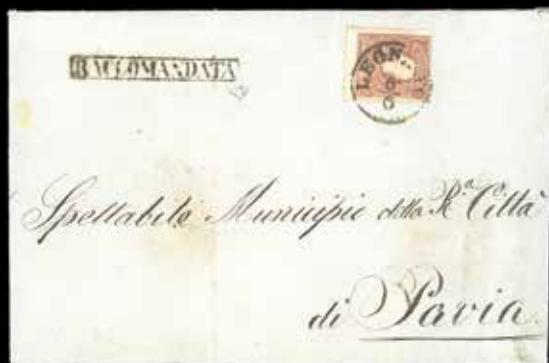 RACCOMANDATA
Spettabile Municipio della R.ª Città
di Pavia